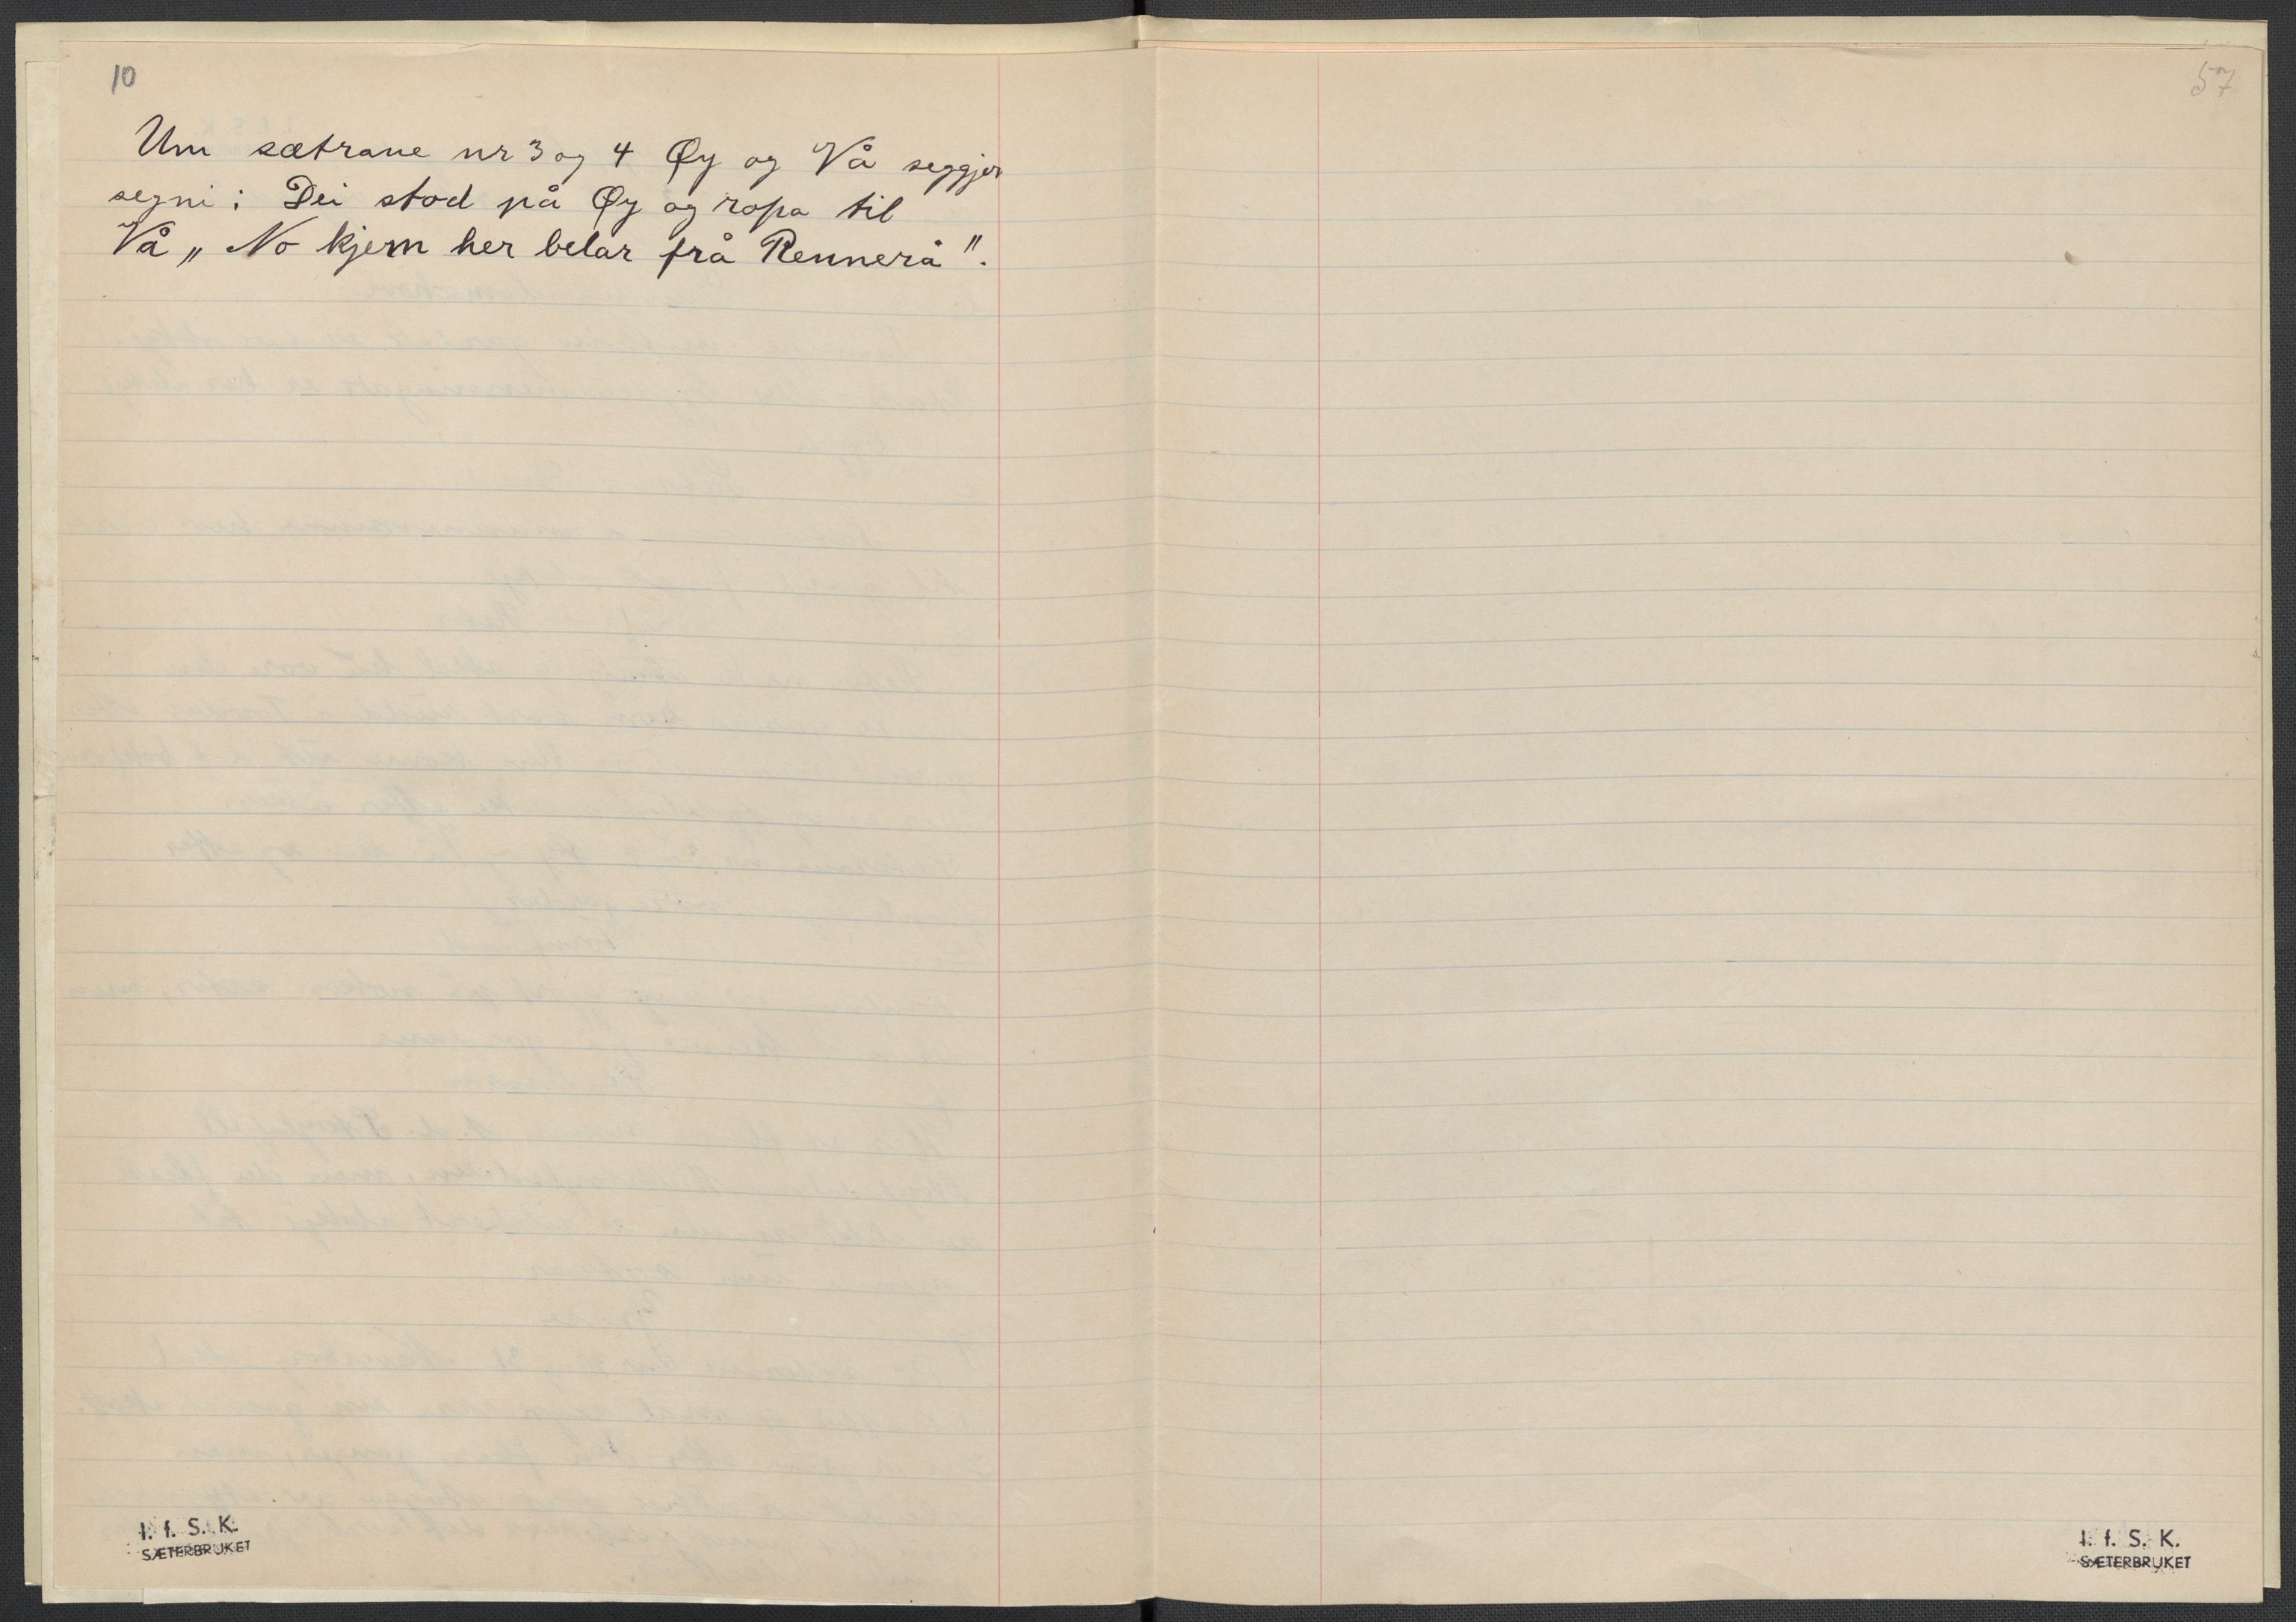 10
Um sætrane nr 3 og 4 Øy og Vå seggjer
segni: Dei stod på Øy og ropa til
Vå „ No kjem her belar frå Rennerå".
I. f. S. K.
SÆTERBRUKET
57
I. f. S. K.
SÆTERBRUKET